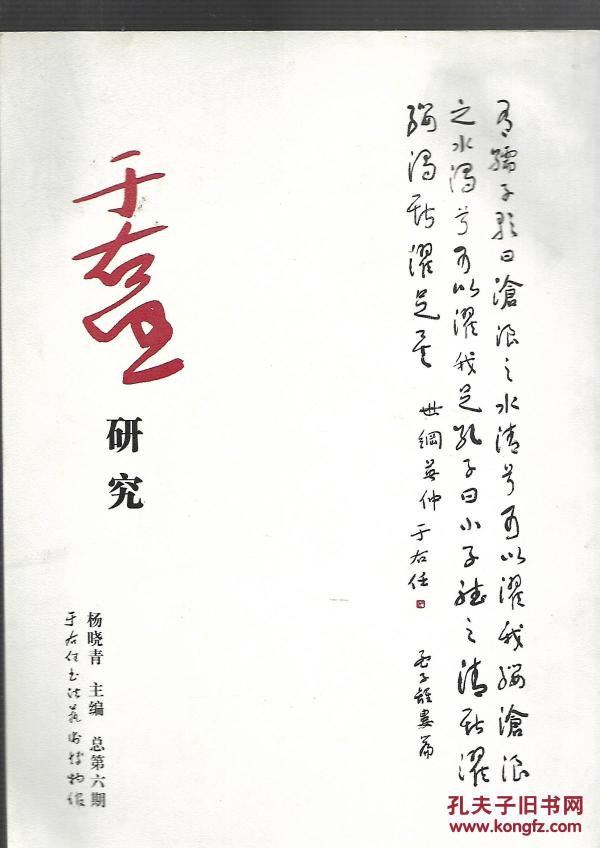 有孺子歌曰滄浪之水清兮可以濯我纓滄浪
之水濁兮可以濯我足孔子曰小子聽之清斯濯
纓濁斯濯足矣 世綱 仲 于右任
孟子離婁篇
于右任
研究
杨晓青 主编 总第六期
于右任书法艺术博物馆
孔夫子旧书网
www.kongfz.com